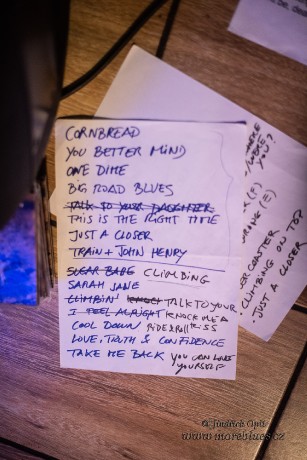 CORNBREAD
YOU BETTER MIND
ONE DIME
BIG ROAD BLUES
TALK TO YOUR DAUGHTER
THIS IS THE RIGHT TIME
JUST A CLOSER
TRAIN + JOHN HENRY
SUGAR BABE CLIMBING
SARAH JANE
CLIMBIN' TALK TO YOUR
I FEEL ALRIGHT KNOCK ME A
COOL DOWN RIDE & ROLL
LOVE, TRUTH & CONFIDENCE
TAKE ME BACK YOU CAN LOSE
YOURSELF
YOU?
(F)
(E)
CLIMBING ON TOP
JUST A CLOSER
© Jindřich Oplt
www.moreblues.cz